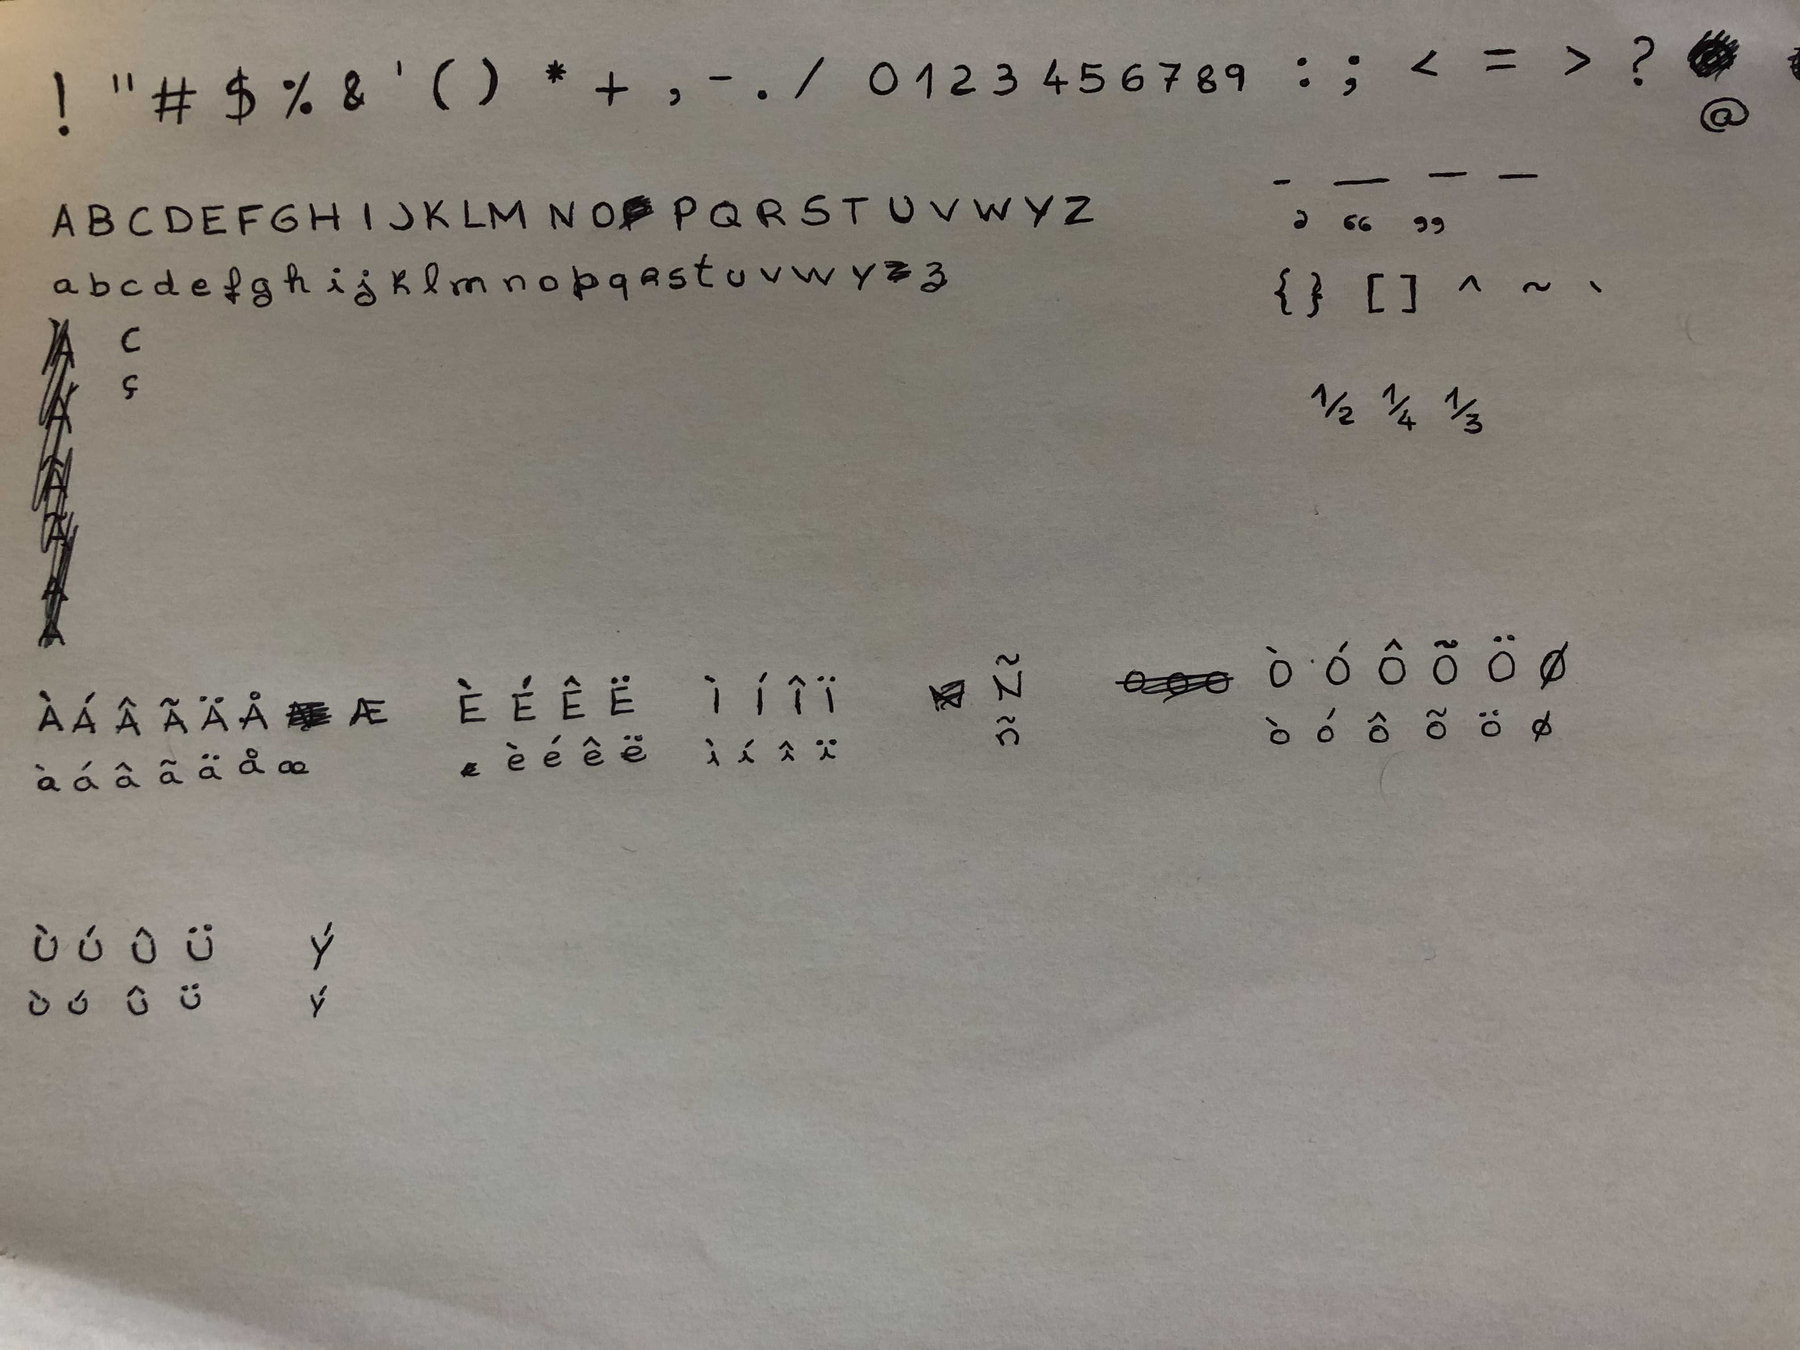 ! " # $ % & ' ( ) * + , - . / 0 1 2 3 4 5 6 7 8 9 : ; < = > ?
@
- — – –
A B C D E F G H I J K L M N O P Q R S T U V W Y Z
, “ ”
a b c d e f g h i j k l m n o p q r s t u v w y z
{ } [ ] ^ ~ `
C
ç
½ ¼ ⅓
À Á Â Ã Ä Å Æ È É Ê Ë Ì Í Î Ï Ñ Ò Ó Ô Õ Ö Ø
à á â ã ä å æ è é ê ë ì í î ï ñ ò ó ô õ ö ø
Ù Ú Û Ü Ý
ù ú û ü ý